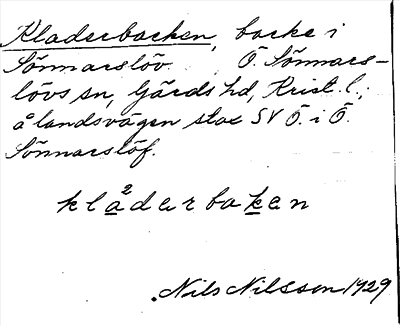 Kladerbacken, backe i
Sönnarslöv Ö. Sönnars-
lövs sn, Gärds hd, Krist. l.;
å landsvägen stax SV Ö. i Ö.
Sönnarslöf.
kla²derbaken
Nils Nilsson 1929